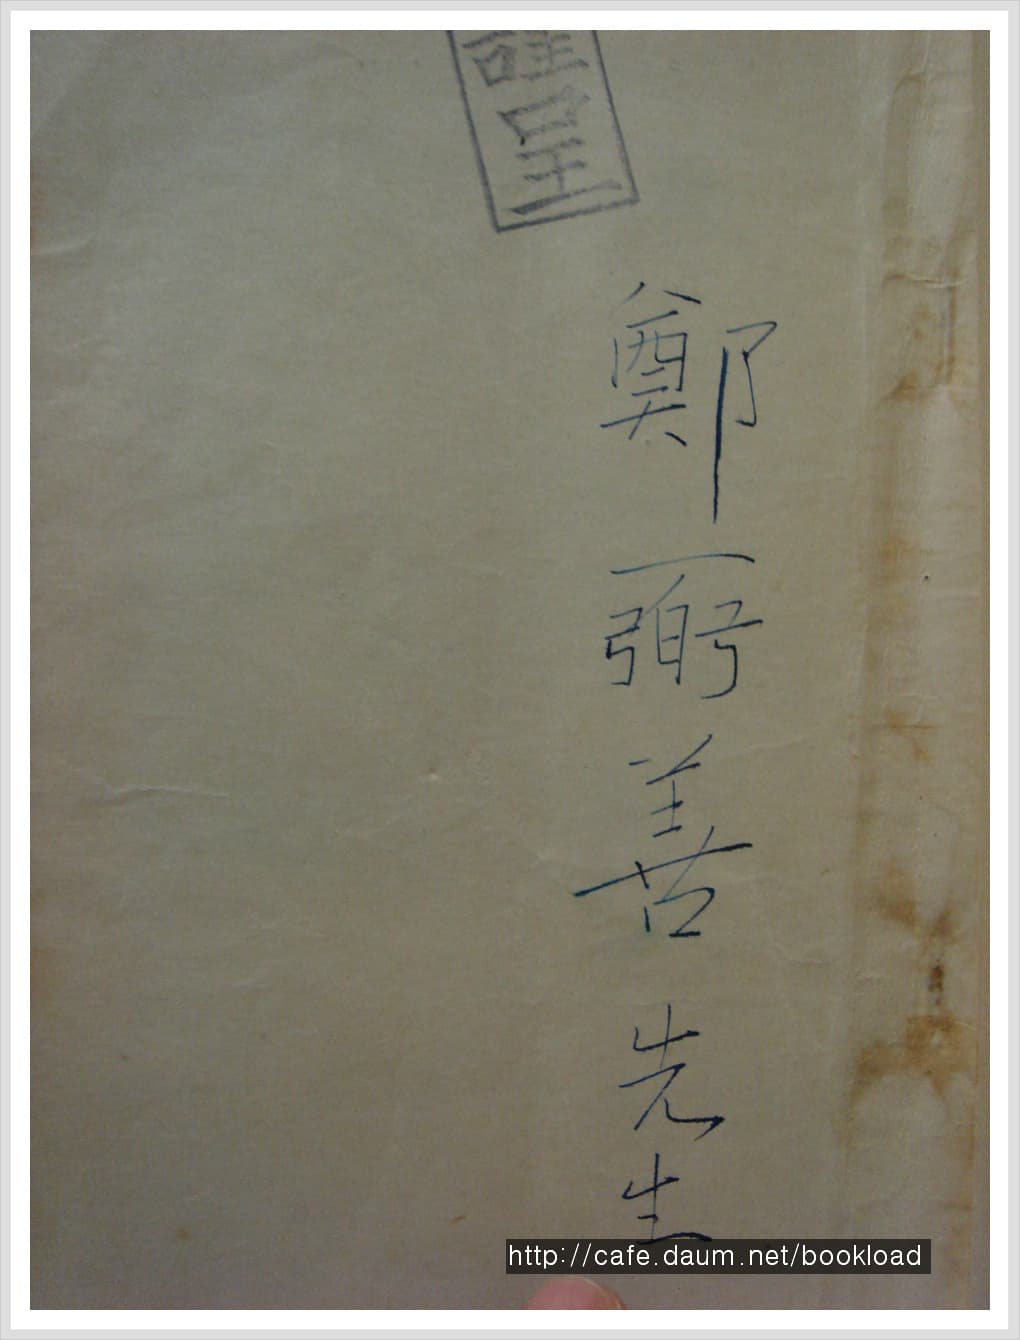 謹呈
鄭弼善先生
http://cafe.daum.net/bookload